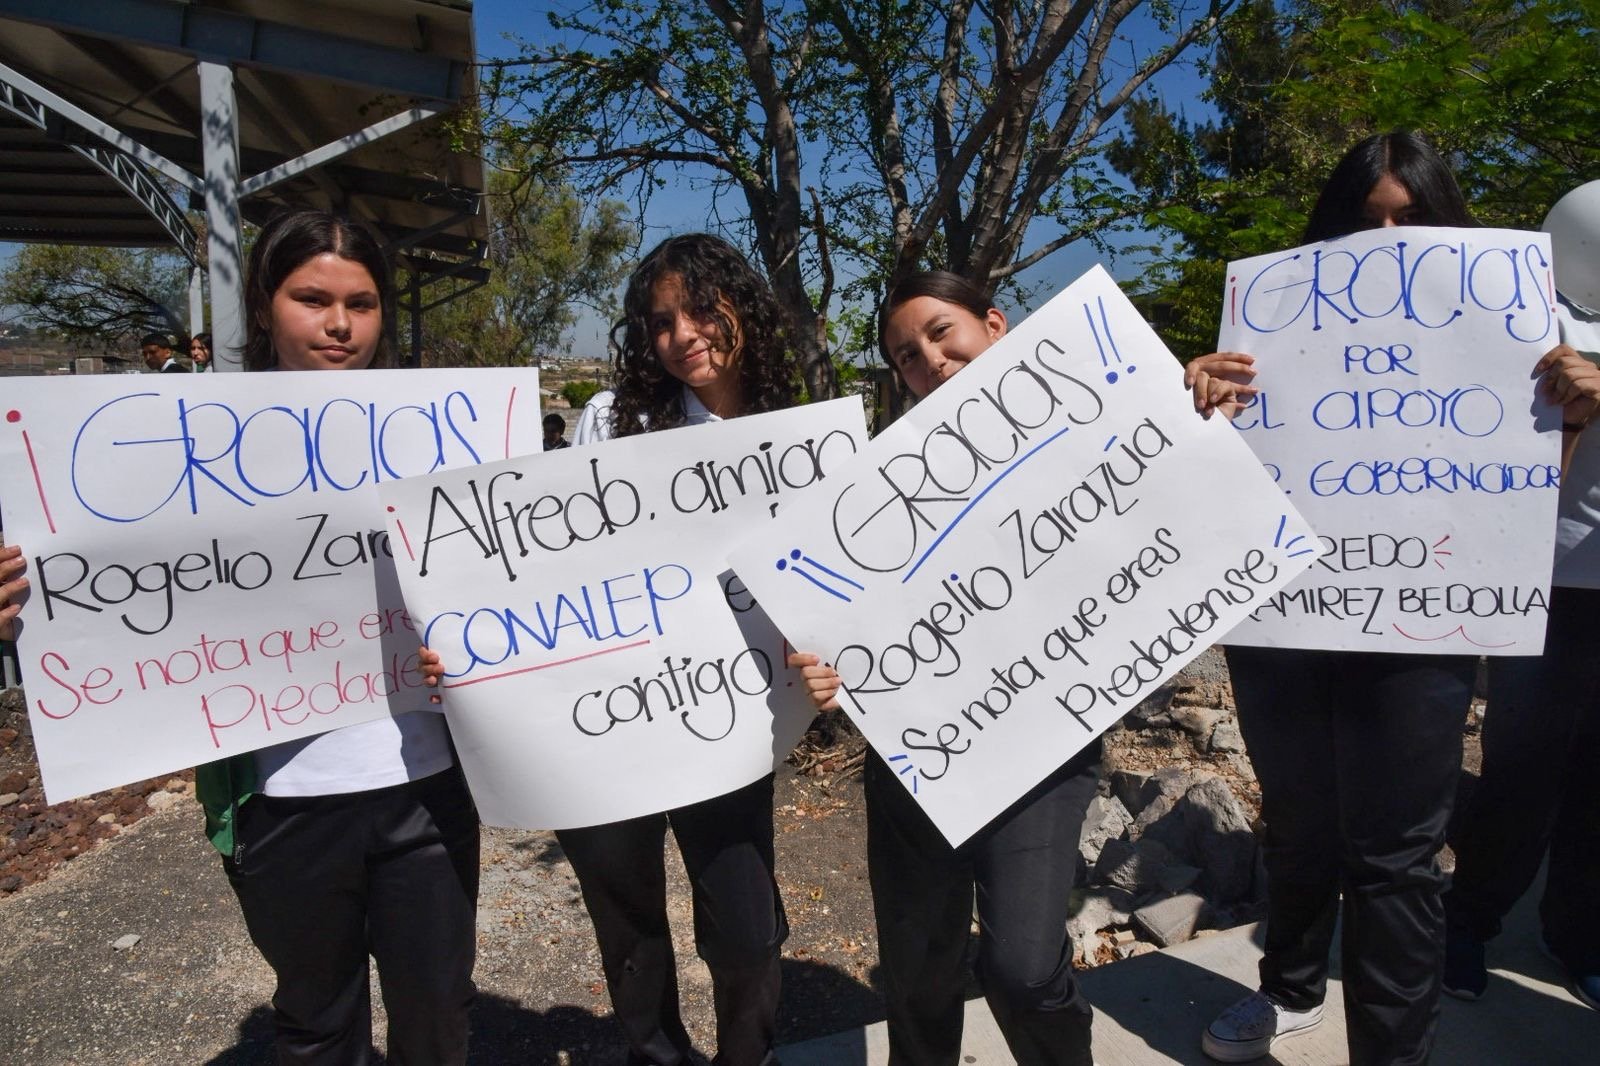 ¡GRACIAS!
Rogelio Zara
Se nota que eres
Piedade
¡Alfredo, amigo
CONALEP e
contigo!
¡¡GRACIAS!!
Rogelio Zarazúa
Se nota que eres
Piedadense
¡GRACIAS!
POR
EL APOYO
R. GOBERNADOR
REDO
RAMIREZ BEDOLLA